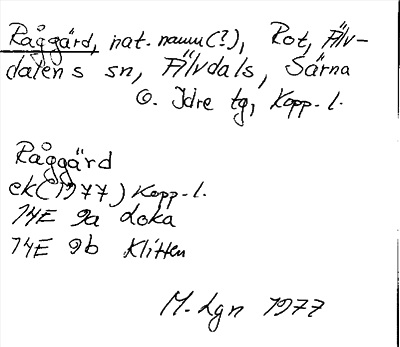 Råggärd, nat. namn(?), Rot, Älv-
dalens sn, Älvdals, Särna
o. Idre tg, Kopp. l.
Råggärd
ek(1977) Kopp. l.
14E 9a Loka
14E 9b Klitten
M. Lgn 1977